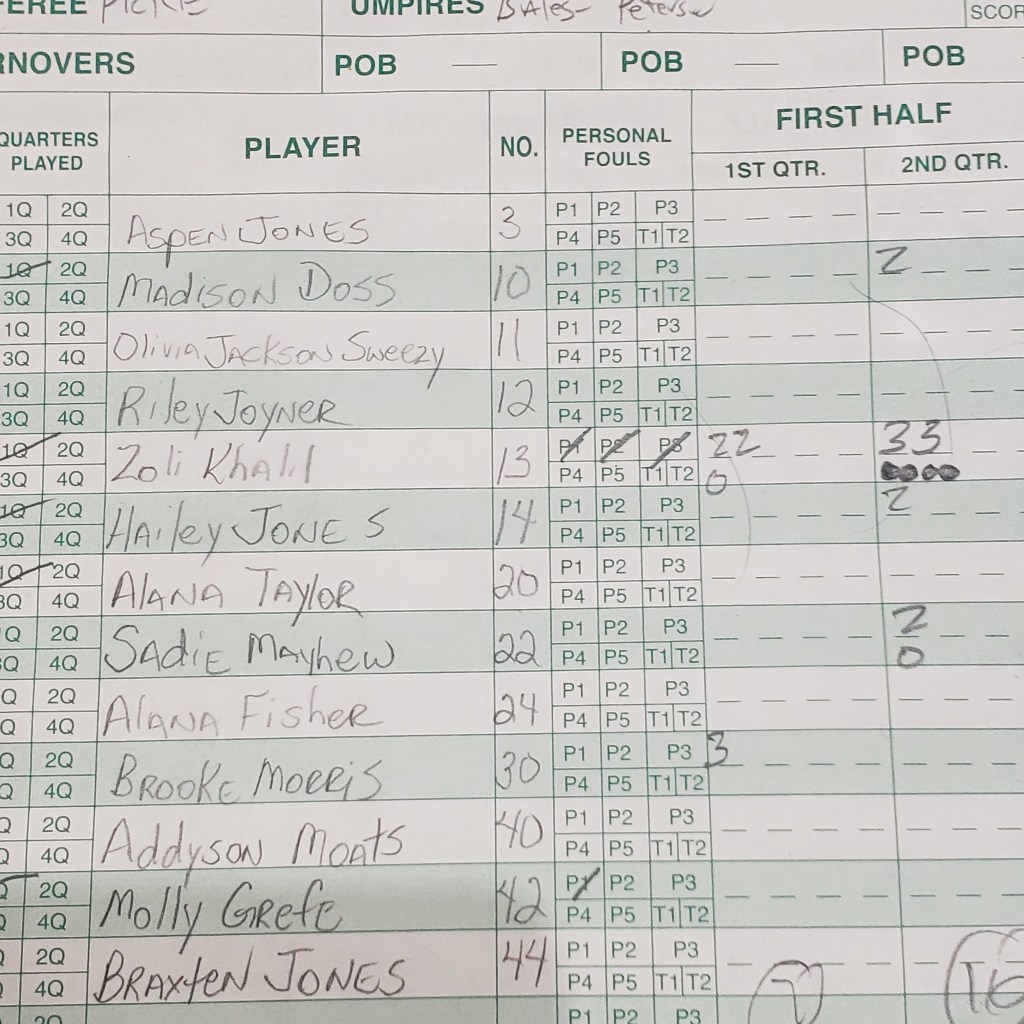 UMPIRES BAles- Peterson
SCOR
RNOVERS POB — POB — POB
QUARTERS PLAYED PLAYER NO. PERSONAL FOULS FIRST HALF
1ST QTR. 2ND QTR.
1Q 2Q ASPEN JONES 3 P1 P2 P3
3Q 4Q P4 P5 T1 T2
1Q 2Q MADISON DOSS 10 P1 P2 P3 2
3Q 4Q P4 P5 T1 T2
1Q 2Q OliviA JACKSON SweEZy 11 P1 P2 P3
3Q 4Q P4 P5 T1 T2
1Q 2Q RileY JOYNER 12 P1 P2 P3
3Q 4Q P4 P5 T1 T2
1Q 2Q Zoli KhAlil 13 P1 P2 P3 22 33
3Q 4Q P4 P5 T1 T2 0
1Q 2Q HAiley JONES 14 P1 P2 P3 2
3Q 4Q P4 P5 T1 T2
1Q 2Q AlANA TAYlOR 20 P1 P2 P3
3Q 4Q P4 P5 T1 T2
Q 2Q SAdiE MAyhew 22 P1 P2 P3 2
Q 4Q P4 P5 T1 T2 0
Q 2Q AlANA FisheR 24 P1 P2 P3
Q 4Q P4 P5 T1 T2
Q 2Q BROOKE MORRiS 30 P1 P2 P3 3
Q 4Q P4 P5 T1 T2
Q 2Q AddysoN MoAts 40 P1 P2 P3
Q 4Q P4 P5 T1 T2
2Q Molly GRefe 42 P1 P2 P3
Q 4Q P4 P5 T1 T2
2Q BRAXtEN JONES 44 P1 P2 P3
4Q P4 P5 T1 T2 7 16
2Q P1 P2 P3